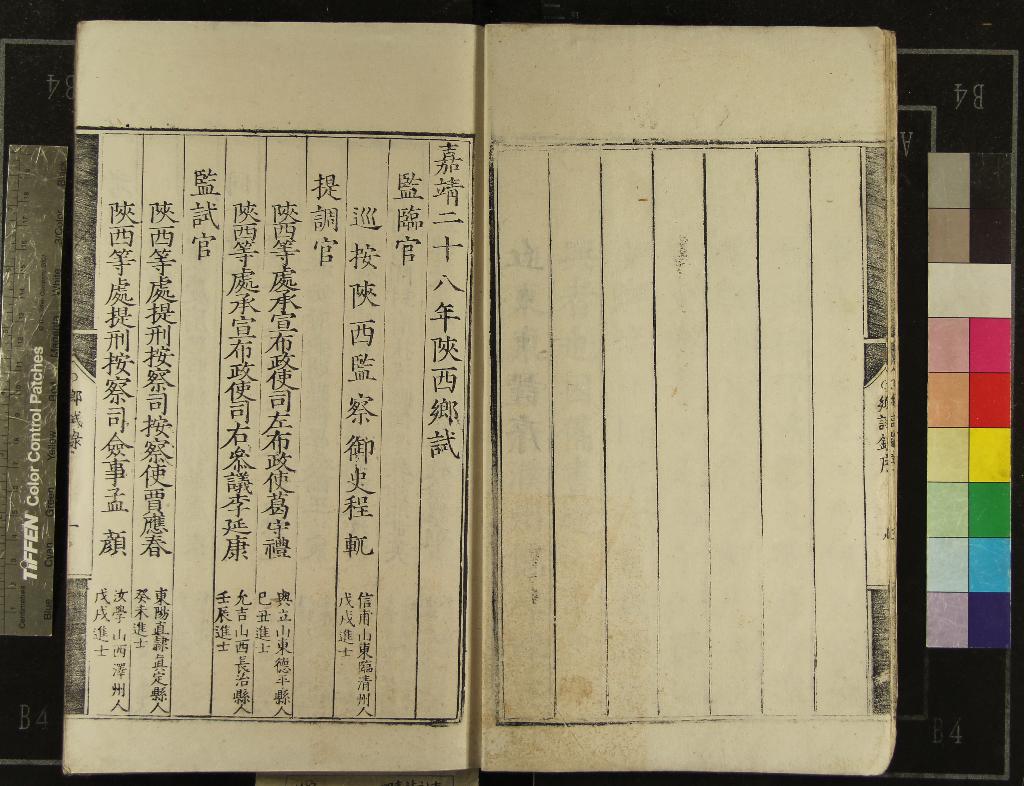 嘉靖二十八年陝西鄉試
監臨官
巡按陝西監察御史程軏
信甫山東臨清州人
戊戌進士
提調官
陝西等處承宣布政使司左布政使葛守禮
與立山東德平縣人
己丑進士
陝西等處承宣布政使司右叅議李延康
允吉山西長治縣人
壬辰進士
監試官
陝西等處提刑按察司按察使賈應春
東陽直隸真定縣人
癸未進士
陝西等處提刑按察司僉事孟顏
汝學山西澤州人
戊戌進士
鄉試錄
一
鄉試錄序
TIFFEN Color Control Patches
B4
B4
B4
B4
A